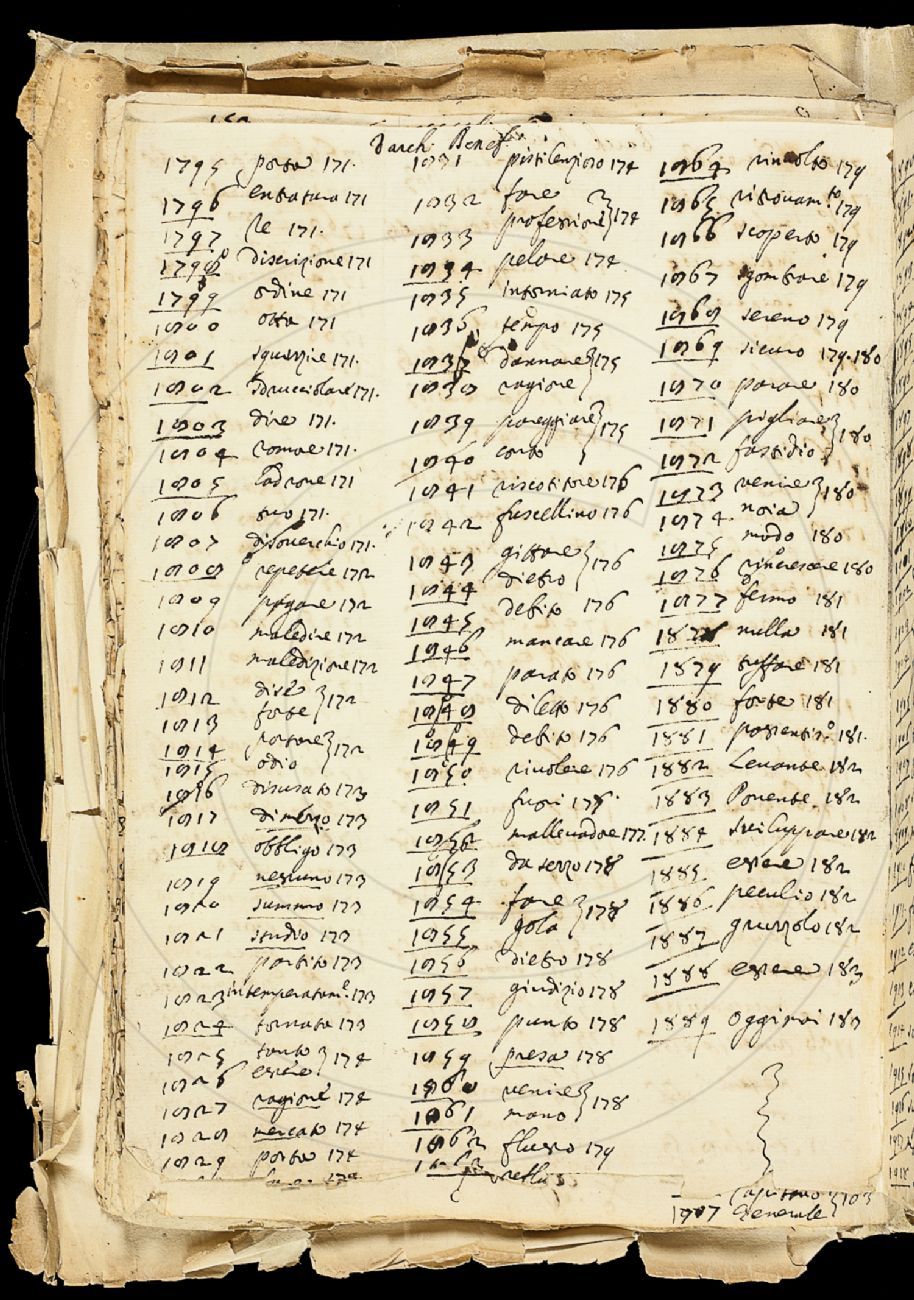 Varch. Benef.
1795 porta 171.
1796 entratura 171
1797 Re 171.
1798 discrizione 171
1799 ordine 171
1800 otta 171
1801 171.
1802 sdrucciolare 171.
1803 dire 171.
1804 171.
1805 ladrone 171
1806 suo 171.
1807 disoverchio 171.
1808 repetere 172
1809 pagare 172
1810 maledire 172
1811 maledizione 172
1812 dire } 172
1813 forse
1814 portare } 172
1815 odio
1816 disusato 173
1817 173
1818 obbligo 173
1819 nessuno 173
1820 summo 173
1821 studio 173
1822 partito 173
1823 intemperatam.e 173
1824 tornata 173
1825 tanto } 174
1826 essere
1827 ragione 174
1828 mercato 174
1829 porta 174
1831 pistilenzioso 174
1832 fare } 174
1833 professione
1834 pelare 174
1835 intorniato 175
1836 tempo 175
1837 dannare } 175
1838 ragione
1839 pareggiare } 175
1840 conto
1841 riscotitore 176
1842 fuscellino 176
1843 gittare } 176
1844 dietro
1845 debito 176
1846 mancare 176
1847 parato 176
1848 diletto 176
1849 debito 176
1850 rivolere 176
1851 fuori 176.
1852 mallevadore 177.
1853 da sezzo 178
1854 fare } 178
1855 gola
1856 dietro 178
1857 giudizio 178
1858 punto 178
1859 presa 178
1860 venire } 178
1861 mano
1862 flusso 179
1864 rinvolto 179
1865 ritrovam.to 179
1866 scoperto 179
1867 sgombrare 179
1868 sereno 179
1869 sicuro 179. 180
1870 parare 180
1871 pigliare } 180
1872 fastidio
1873 venire } 180
1874 noia
1875 modo 180
1876 rincrescere 180
1877 fermo 181
1878 nulla 181
1879 181
1880 forte 181
1881 181.
1882 Levante 182
1883 Ponente 182
1884 sviluppare 182
1885 essere 182
1886 peculio 182
1887 gruzzolo 182
1888 essere 183
1889 oggimai 183
1907 Capitano } 103
Generale